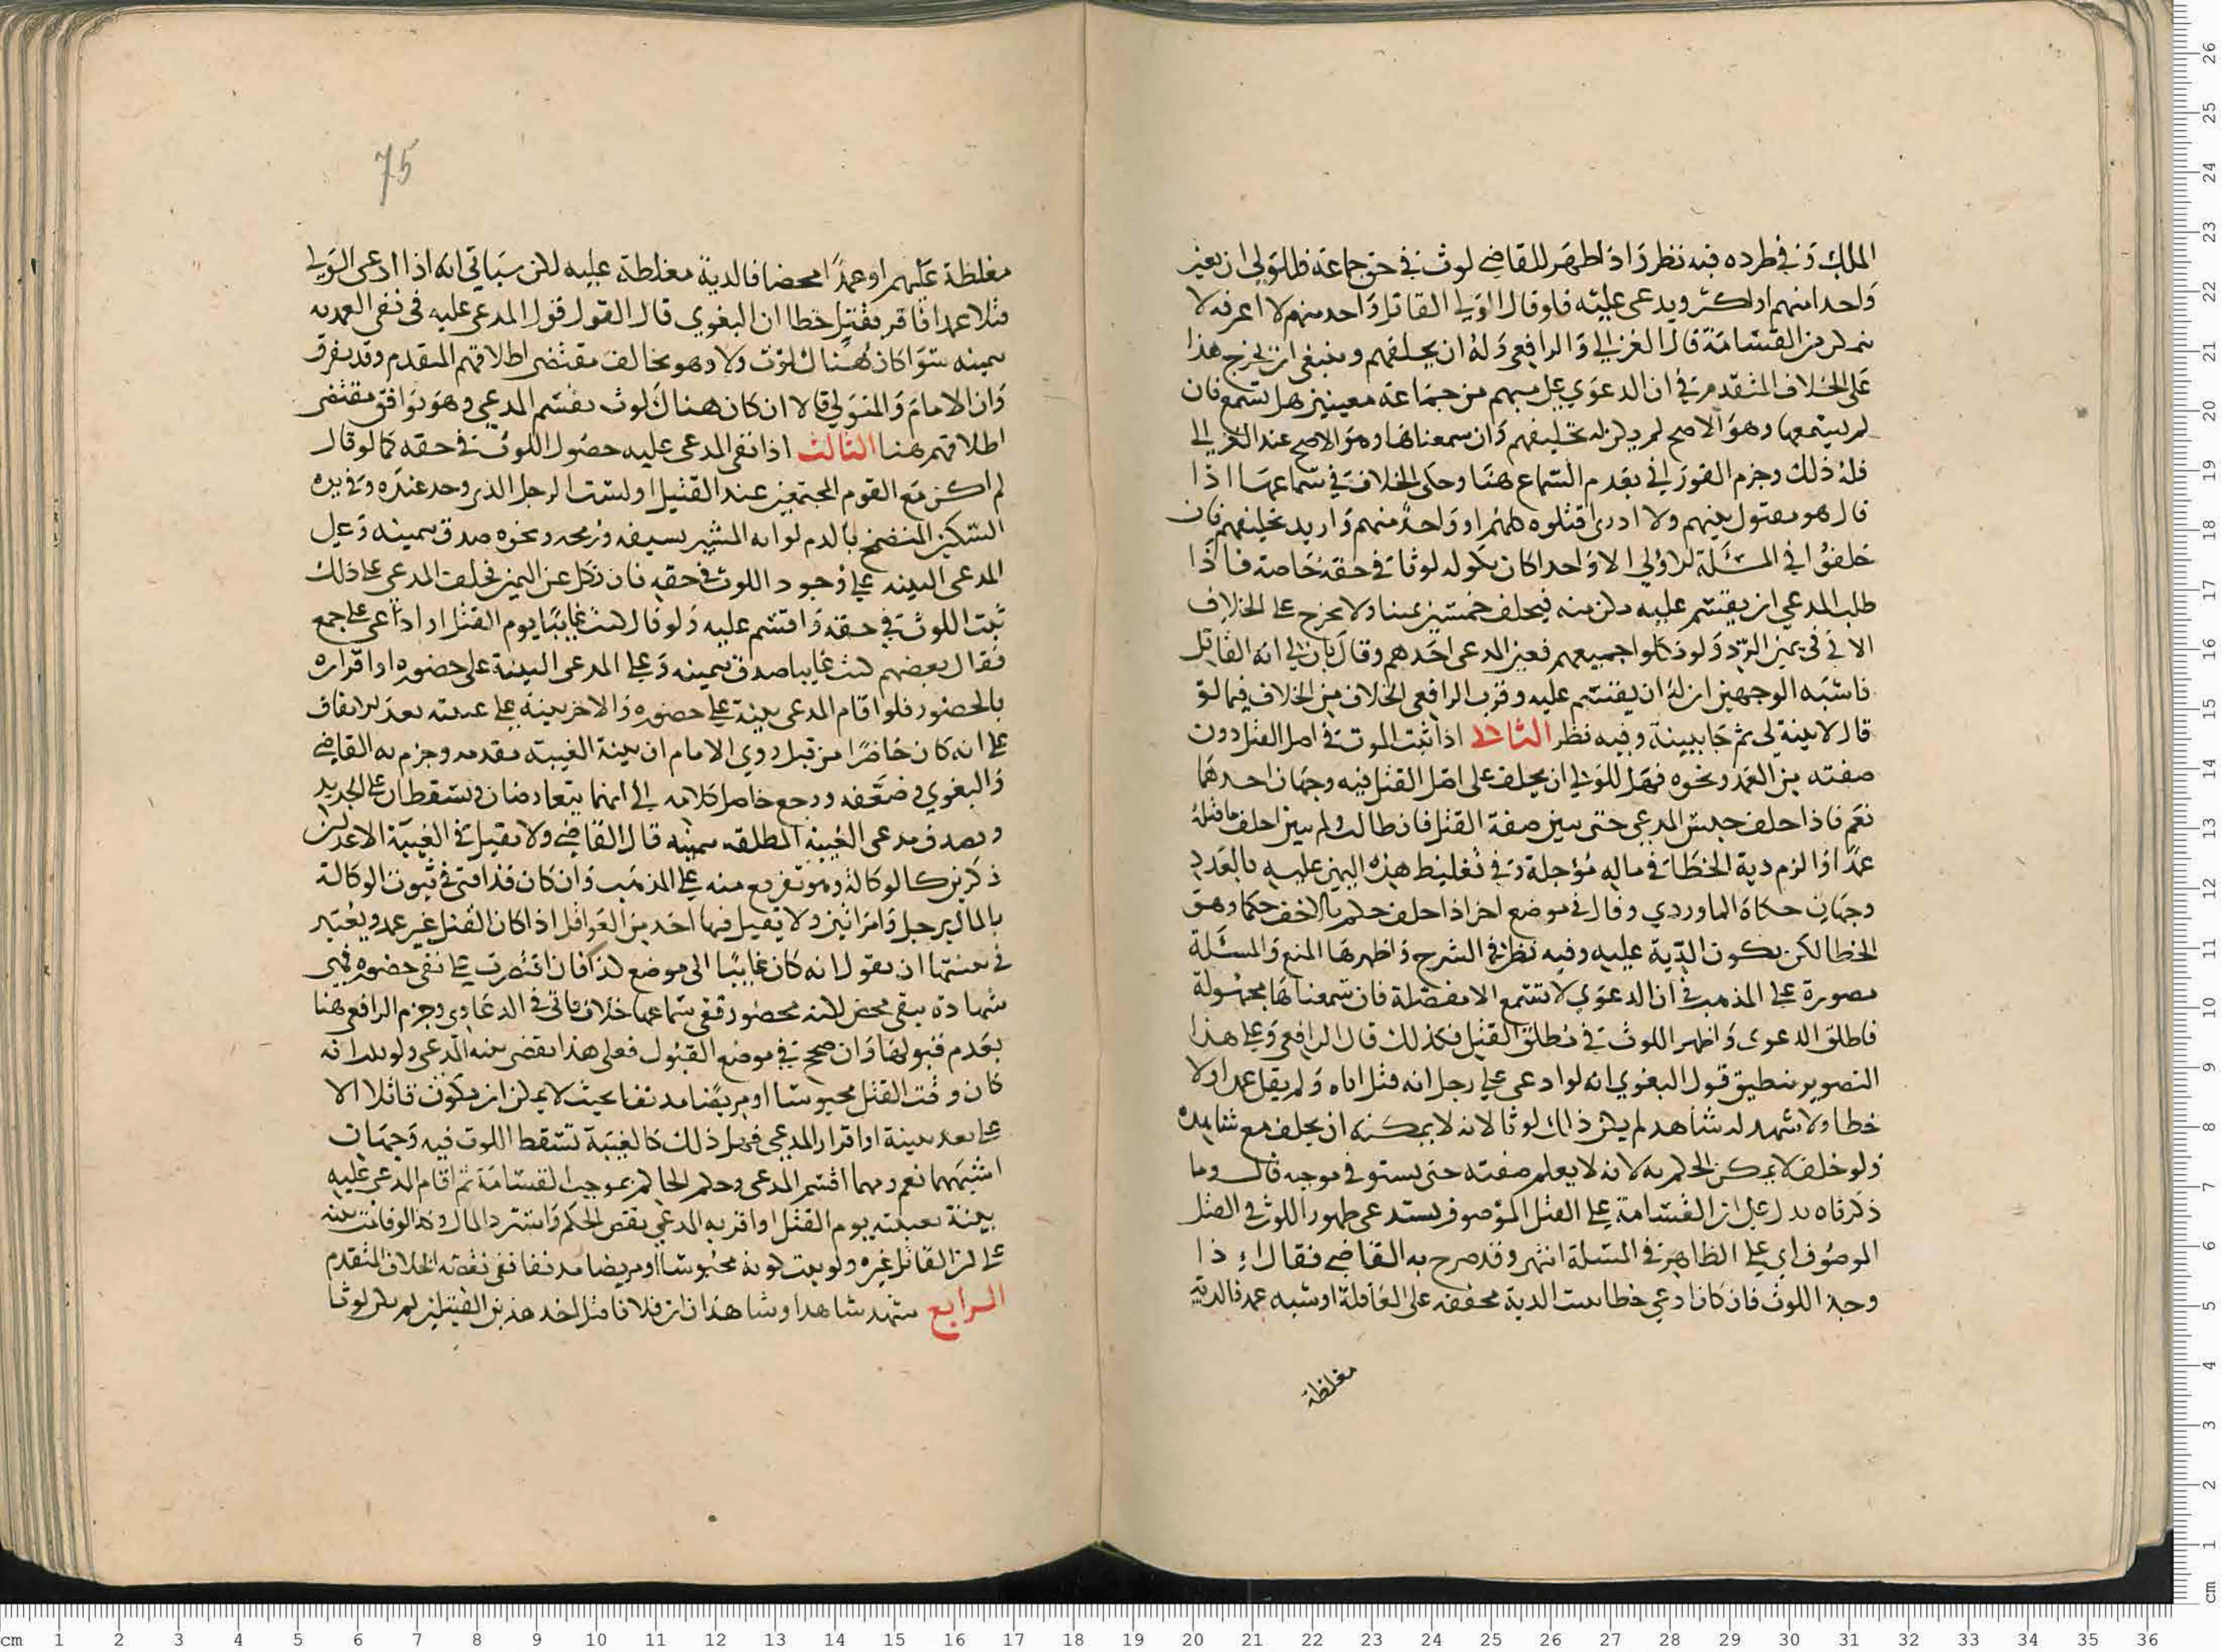 الملك وفي طرده فيه نظر واذا ظهر للقاضي لوث في حق جماعة فللولي ان يعين
واحدا منهم او اكثر ويدعي عليه فلو قال الولي القاتل واحد منهم لا اعرفه لا
يمكن من القسامة قال الغزالي والرافعي وله ان يحلفهم وينبغي ان يخرج هذا
على الخلاف المتقدم في ان الدعوي على مبهم من جماعة معينين هل تسمع فان
لم يسمعها وهو الاصح لم يكن له تحليفهم وان سمعناها وهو الاصح عند الغزالي
فله ذلك وجزم الفوراني بعدم السماع هنا وحكى الخلاف في سماعها اذا
قال هو مقتول بينهم ولا ادري اقتلوه كلهم او واحد منهم واريد تحليفهم فان
حلفوا في المسئلة الاولي الا واحدا كان نكوله لوثا في حقه خاصة فاذا
طلب المدعي ان يقسم عليه مكن منه فيحلف خمسين يمينا ولا يخرج على الخلاف
الاتي في يمين الرد ولو نكلوا جميعهم فعين المدعي احدهم وقال بان لي انه القاتل
فاشبه الوجهين ان له ان يقسم عليه وقرب الرافعي الخلاف من الخلاف فيما لو
قال لا بينة لي ثم جا ببينة وفيه نظر الثاني اذا ثبت اللوث في اصل القتل دون
صفته من العمد ونحوه فهل للولي ان يحلف على اصل القتل فيه وجهان احدهما
نعم فاذا حلف حبس المدعي حتى يبين صفة القتل فان طال ولم يبين احلف ما قتله
عمدا والزم دية الخطا في ماله مؤجلة وفي تغليظ هذه اليمين عليه بالعدد
وجهان حكاه الماوردي وقال في موضع اخر اذا حلف حكم بالاخف حكما وهو
الخطا لكن يكون الدية عليه وفيه نظر في الشرح واظهرها المنع والمسئلة
مصورة على المذهب في ان الدعوي لا تسمع الا مفصلة فان سمعناها مجهولة
فاطلق الدعوى واظهر اللوث في مطلق القتل فكذلك قال الرافعي وعلى هذا
التصوير ينطبق قول البغوي انه لو ادعى على رجل انه قتل اباه ولم يقل عمدا ولا
خطا ولا شهد له شاهد لم يكن ذلك لوثا لانه لا يمكنه ان يحلف مع شاهده
ولو حلف لا يمكن الحكم به لانه لا يعلم صفته حتى يستوفي موجبه قال وما
ذكرناه يدل على ان القسامة على القتل الموصوف يستدعي ظهور اللوث في القتل
الموصوف اي على الظاهر في المسئلة انتهى وقد صرح به القاضي فقال اذا
وجد اللوث فان كان ادعي خطا ثبتت الدية مخففة على العاقلة او شبه عمد فالدية
مغلظة
75
مغلظة عليهم او عمدا محضا فالدية مغلظة عليه لكن سياتي انه اذا ادعى الولي
قتلا عمدا فاقر بقتل خطا ان البغوي قال القول قول المدعى عليه في نفي العمد به
يمينه سوا كان هناك لوث ولا وهو يخالف مقتضى اطلاقهم المتقدم وقد يفرق
وان الامام والمتولي قالا ان كان هناك لوث يقسم المدعي وهو يوافق مقتضى
اطلاقهم هنا الثالث اذا نفي المدعى عليه حصول اللوث في حقه كما لو قال
لم اكن مع القوم المجتمعين عند القتيل او لست الرجل الذي وجد عنده وفي يده
السكين المتضمخ بالدم لو انه المشير بسيفه ورمحه ونحوه صدق بيمينه وعلى
المدعي البينة على وجود اللوث في حقه فان نكل عن اليمين فحلف المدعي على ذلك
ثبت اللوث في حقه واقسم عليه ولو قال كنت غايبا يوم القتل او ادعى على جمع
فقال بعضهم كنت غايبا صدق بيمينه وعلى المدعي البينة على حضوره او اقراره
بالحضور فلو اقام المدعي بينة على حضوره والاخر بينة على غيبته بعد الاتفاق
على انه كان حاضرا من قبل روي الامام ان بينة الغيبة مقدمة وجزم به القاضي
والبغوي وضعفه ورجع حاصل كلامه الى انهما يتعارضان وتسقطان على الجديد
ويصدق مدعي الغيبة المطلقة بيمينه قال القاضي ولا يقبل في الغيبة الا عدلان
ذكرين كالوكالة وهو تفريع منه على المذهب وان كان قد افتى في ثبوت الوكالة
بالمال برجل وامراتين ولا يقبل فيها احد من العواقل اذا كان القتل غير عمد ويعتبر
في بينتها ان يقولا انه كان غايبا الى موضع كذا فان اقتصرت على نفي حضوره فهي
شهادة بنفي محض لكنه محصور ففي سماعها خلاف ياتي في الدعاوي وجزم الرافعي هنا
بعدم قبولها وان صحح في موضع القبول فعلى هذا يقضى بينة المدعي ولو بان انه
كان وقت القتل محبوسا او مريضا مدنفا بحيث لا يمكن ان يكون قاتلا الا
على بعد ببينة او اقرار المدعي فهل ذلك كالغيبة تسقط اللوث فيه وجهان
اشبههما نعم ومهما اقسم المدعي وحكم الحاكم بموجب القسامة ثم اقام المدعى عليه
بينة بغيبته يوم القتل او اقر به المدعي نقض الحكم واسترد المال وكذا لو قامت بينه
على ان القاتل غيره ولو ثبت كونه محبوسا او مريضا مدنفا ففي نقضه الخلاف المتقدم
الرابع شهد شاهد او شاهدان ان فلانا قتل احد هذين القتيلين لم يكن لوثا